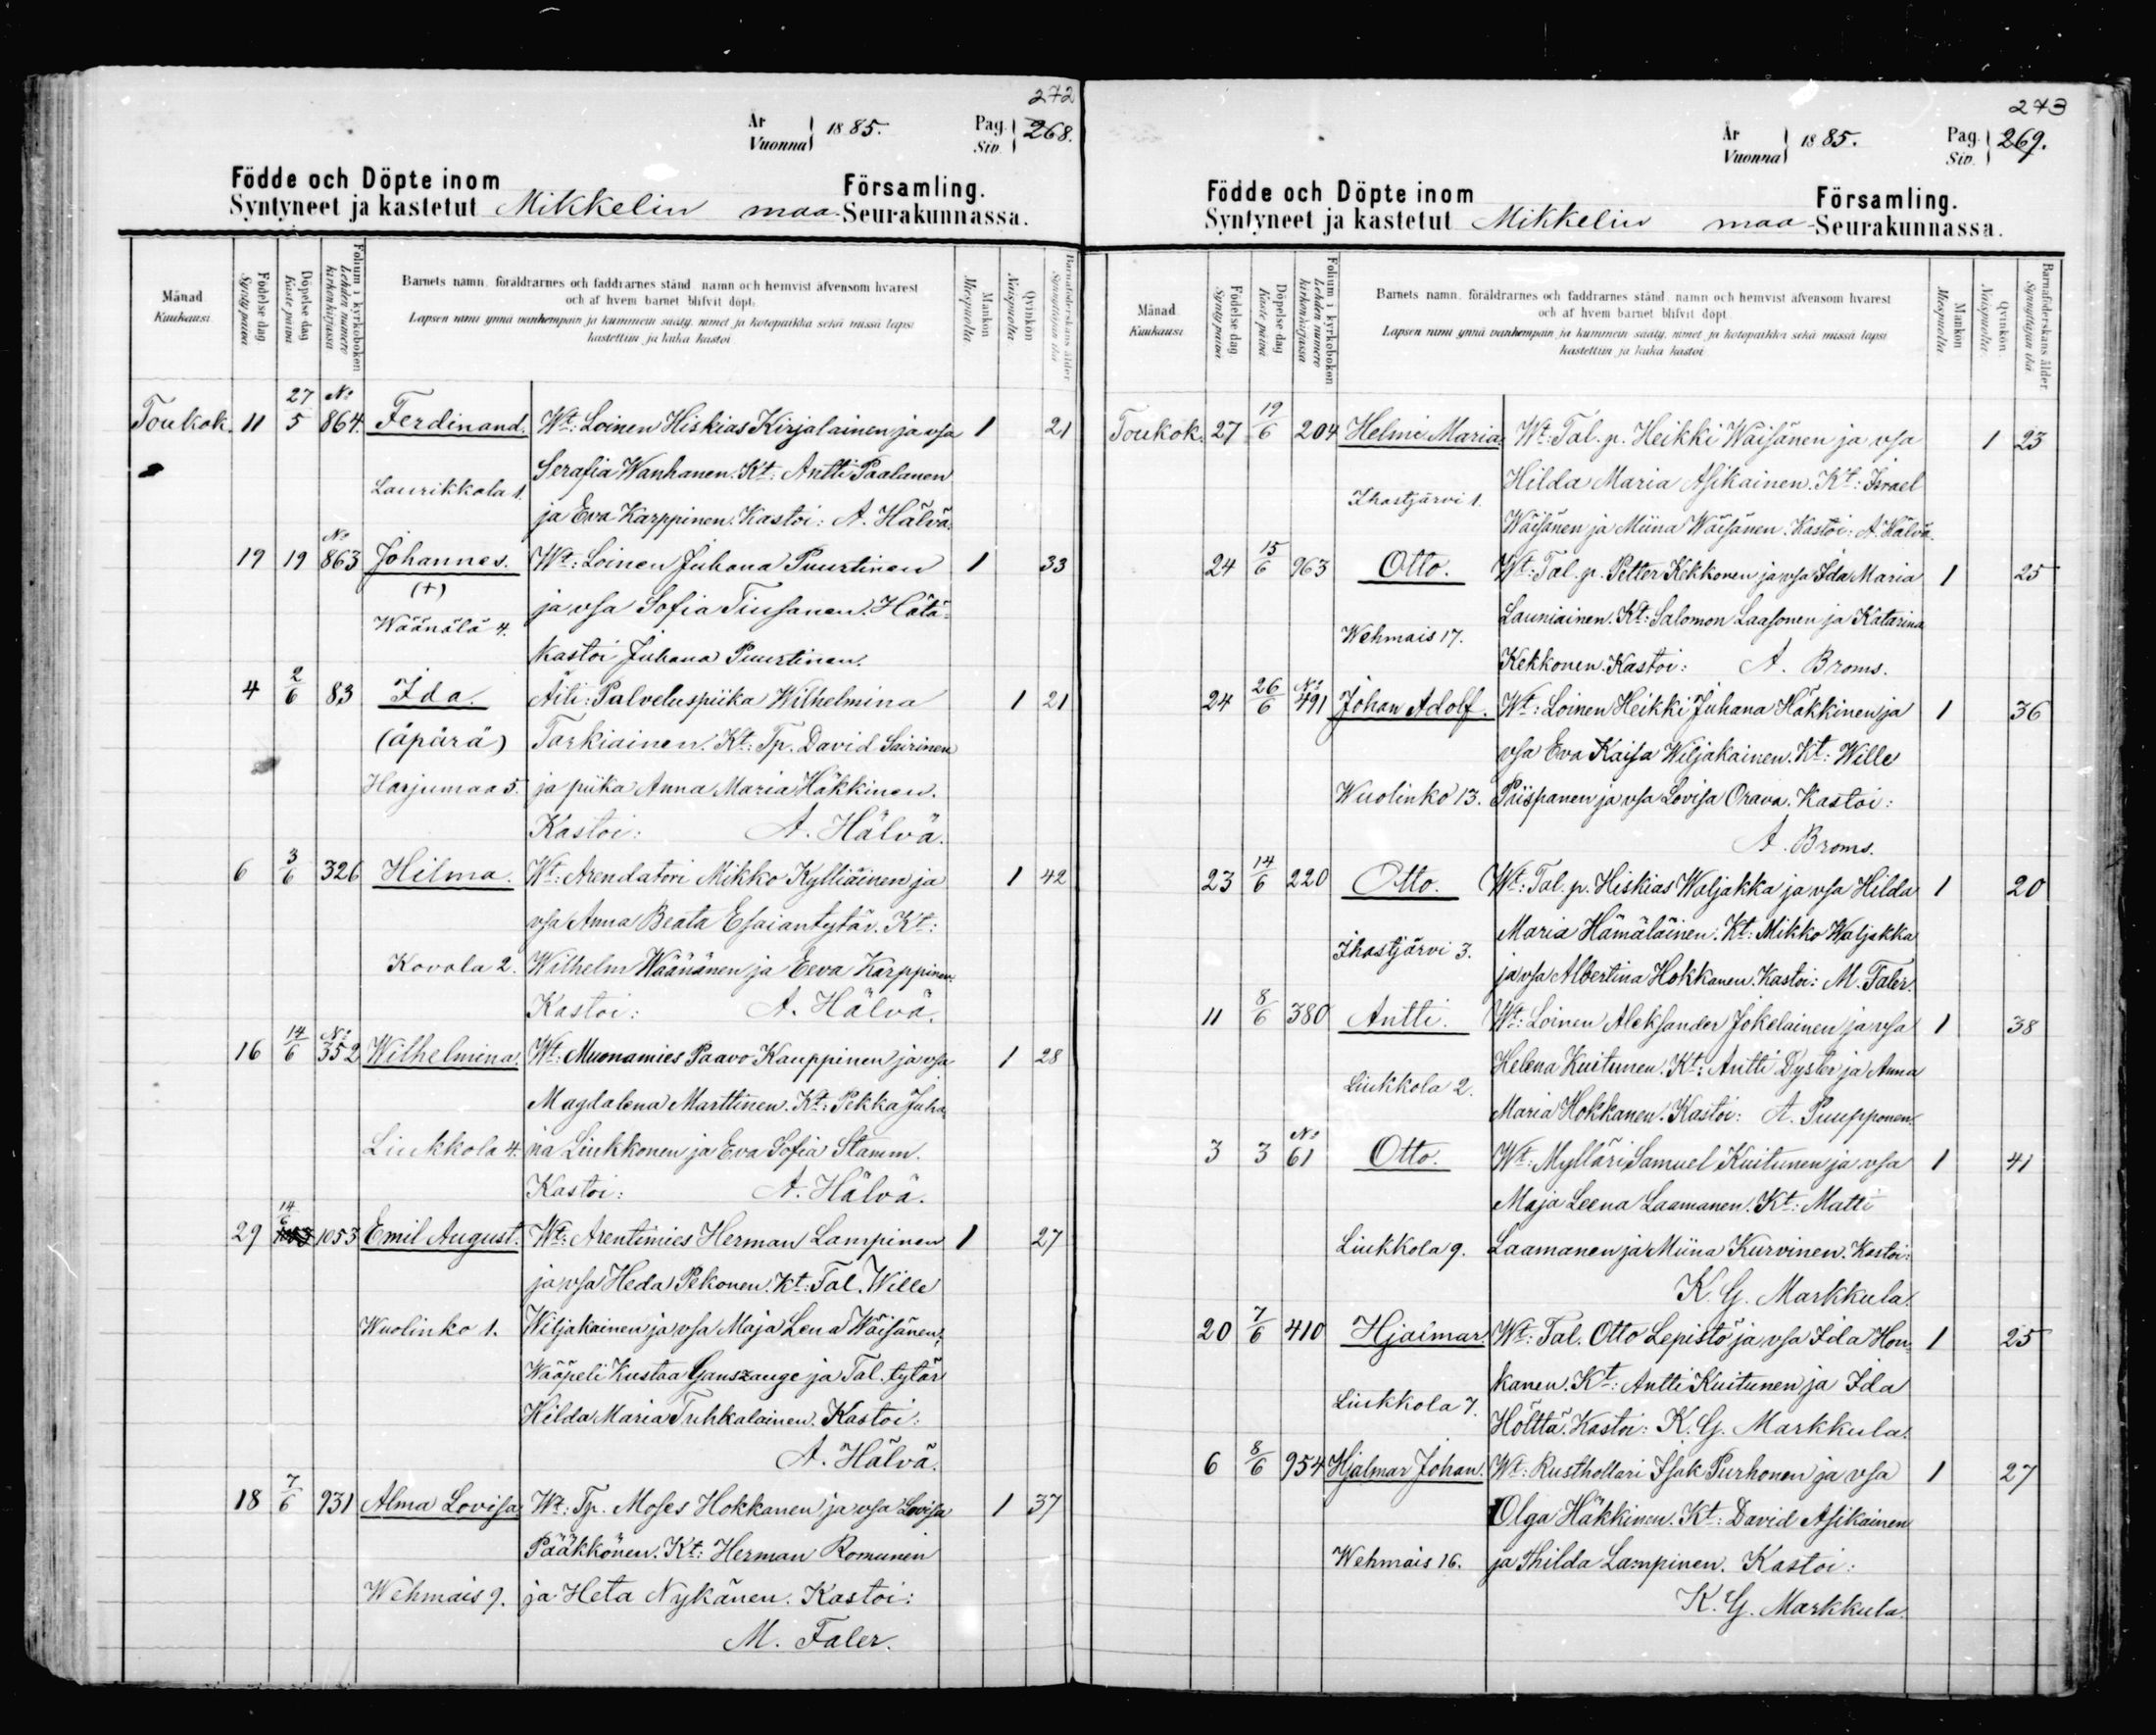 272
År Vuonna 1885. Pag. Siv. 268.
Födde och Döpte inom Församling.
Syntyneet ja kastetut Mikkelin maa- Seurakunnassa.
Månad Kuukausi
Födelse dag Syntypäiwä
Döpelse dag Kaste päiwä
Folium i kyrkoboken Lehden numero kirkonkirjassa
Barnets namn, föräldrarnes och faddrarnes stånd, namn och hemvist äfvensom hvarest
och af hvem barnet blifvit döpt.
Lapsen nimi ynnä vanhempain ja kummein sääty, nimet ja kotopaikka sekä missä lapsi
kastettiin ja kuka kastoi
Mankön Miespuolta
Qvinkön Naispuolta
Barnaföderskans ålder Synnyttäjän ikä
Toukok. 11 27/5 No 864. Ferdinand. Wt: Loinen Hiskias Kirjalainen ja vsa 1 21
Serafia Wanhanen. Kt: Antti Paalanen
Laurikkala 1. ja Eva Karppinen. Kastoi: A. Hälvä.
19 19 No 863 Johannes. Wt: Loinen Juhana Puurtinen 1 33
(+) ja vsa Sofia Tiusanen. Hätä-
Wäänälä 4. kastoi Juhana Puurtinen.
4 2/6 83 Ida. Äiti: Palveluspiika Wilhelmina 1 21
(äpärä) Tarkiainen. Kt: Tp. David Sairinen
Harjumaa 5. ja piika Anna Maria Häkkinen.
Kastoi: A. Hälvä.
6 3/6 326 Hilma. Wt: Arendatori Mikko Kylliäinen ja 1 42
vsa Anna Beata Esaiantytär. Kt:
Kovala 2. Wilhelm Wäänänen ja Eeva Karppinen.
Kastoi: A. Hälvä.
16 14/6 No 352 Wilhelmina. Wt: Muonamies Paavo Kauppinen ja vsa 1 28
Magdalena Marttinen. Kt: Pekka Juha
Liukkola 4. na Liukkonen ja Eva Sofia Stamm.
Kastoi: A. Hälvä.
29 14/6 1053 Emil August. Wt: Arentimies Herman Lampinen 1 27
ja vsa Heda Pekonen. Kt: Tal. Wille
Wuolinko 1. Wiljakainen ja vsa Maja Lena Wäisänen,
Wääpeli Kustaa Ganszauge ja Tal. tytär
Hilda Maria Tuhkalainen. Kastoi:
A. Hälvä.
18 7/6 931 Alma Lovisa. Wt: Tp. Moses Hokkanen ja vsa Lovisa 1 37
Pääkkönen. Kt: Herman Romunen
Wehmais 9. ja Heta Nykänen. Kastoi:
M. Faler.
273
År Vuonna 1885. Pag. Siv. 269.
Födde och Döpte inom Församling.
Syntyneet ja kastetut Mikkelin maa- Seurakunnassa.
Månad Kuukausi
Födelse dag Syntypäiwä
Döpelse dag Kaste päiwä
Folium i kyrkoboken Lehden numero kirkonkirjassa
Barnets namn, föräldrarnes och faddrarnes stånd, namn och hemvist äfvensom hvarest
och af hvem barnet blifvit döpt.
Lapsen nimi ynnä vanhempain ja kummein sääty, nimet ja kotopaikka sekä missä lapsi
kastettiin ja kuka kastoi
Mankön Miespuolta
Qvinkön Naispuolta
Barnaföderskans ålder Synnyttäjän ikä
Toukok. 27 19/6 204 Helmi Maria. Wt: Tal. p. Heikki Wäisänen ja vsa 1 23
Hilda Maria Asikainen. Kt: Israel
Ihastjärvi 1. Wäisänen ja Miina Wäisänen. Kastoi: A. Hälvä.
24 15/6 963 Otto. Wt: Tal. p. Petter Kekkonen ja vsa Ida Maria 1 25
Launiainen. Kt: Salomon Laasonen ja Katarina
Wehmais 17. Kekkonen. Kastoi: A. Broms.
24 26/6 No 491 Johan Adolf. Wt: Loinen Heikki Juhana Häkkinen ja 1 36
vsa Eva Kaisa Wiljakainen. Kt: Wille
Wuolinko 13. Piispanen ja vsa Lovisa Orava. Kastoi:
A. Broms.
23 14/6 220 Otto. Wt: Tal. p. Hiskias Waljakka ja vsa Hilda 1 20
Maria Hämäläinen. Kt: Mikko Waljakka
Ihastjärvi 3. ja vsa Albertina Hokkanen. Kastoi: M. Faler.
11 8/6 380 Antti. Wt: Loinen Aleksander Jokelainen ja vsa 1 38
Helena Kuitunen. Kt: Antti Dyster ja Anna
Liukkola 2. Maria Hokkanen. Kastoi: A. Puupponen.
3 3 No 61 Otto. Wt: Mylläri Samuel Kuitunen ja vsa 1 41
Maja Leena Laamanen. Kt: Matti
Liukkola 9. Laamanen ja Miina Kurvinen. Kastoi:
K. G. Markkula.
20 7/6 410 Hjalmar. Wt: Tal. Otto Lepistö ja vsa Ida Hon- 1 25
kanen. Kt: Antti Kuitunen ja Ida
Liukkola 7. Hölttä. Kastoi: K. G. Markkula.
6 8/6 954 Hjalmar Johan. Wt: Rusthollari Isak Purhonen ja vsa 1 27
Olga Häkkinen. Kt: David Asikainen
Wehmais 16. ja Thilda Lampinen. Kastoi:
K. G. Markkula.